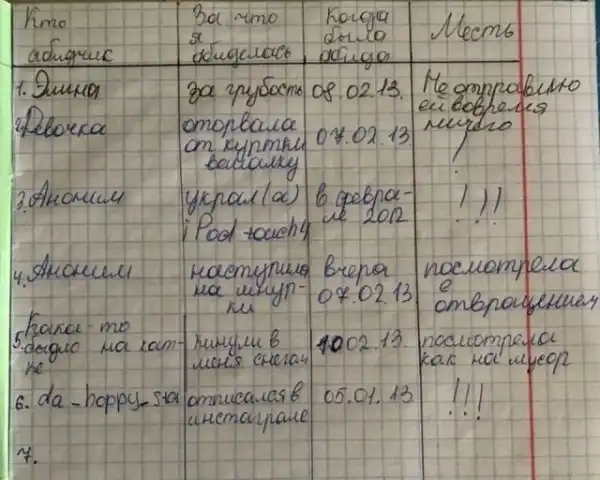 Кто абидчик | За что я обиделась | Когда было абида | Месть
1. Элина | за грубость | 08.02.13. | Не отправлю ей вовремя ничего
2. Девочка | оторвала от куртки вешалку | 07.02.13. | !
3. Аноним | украл(а) iPod touch 4 | в феврале 2012 | !!!
4. Аноним | наступила на шнурки | вчера 07.02.13 | посмотрела с отвращением
5. Кака-то быдло на катке | кинули в меня снегом | 10 02.13. | посмотрела как на мусор
6. da_hoppy_sta | отписался в инстаграме | 05.01.13 | !!!
7.